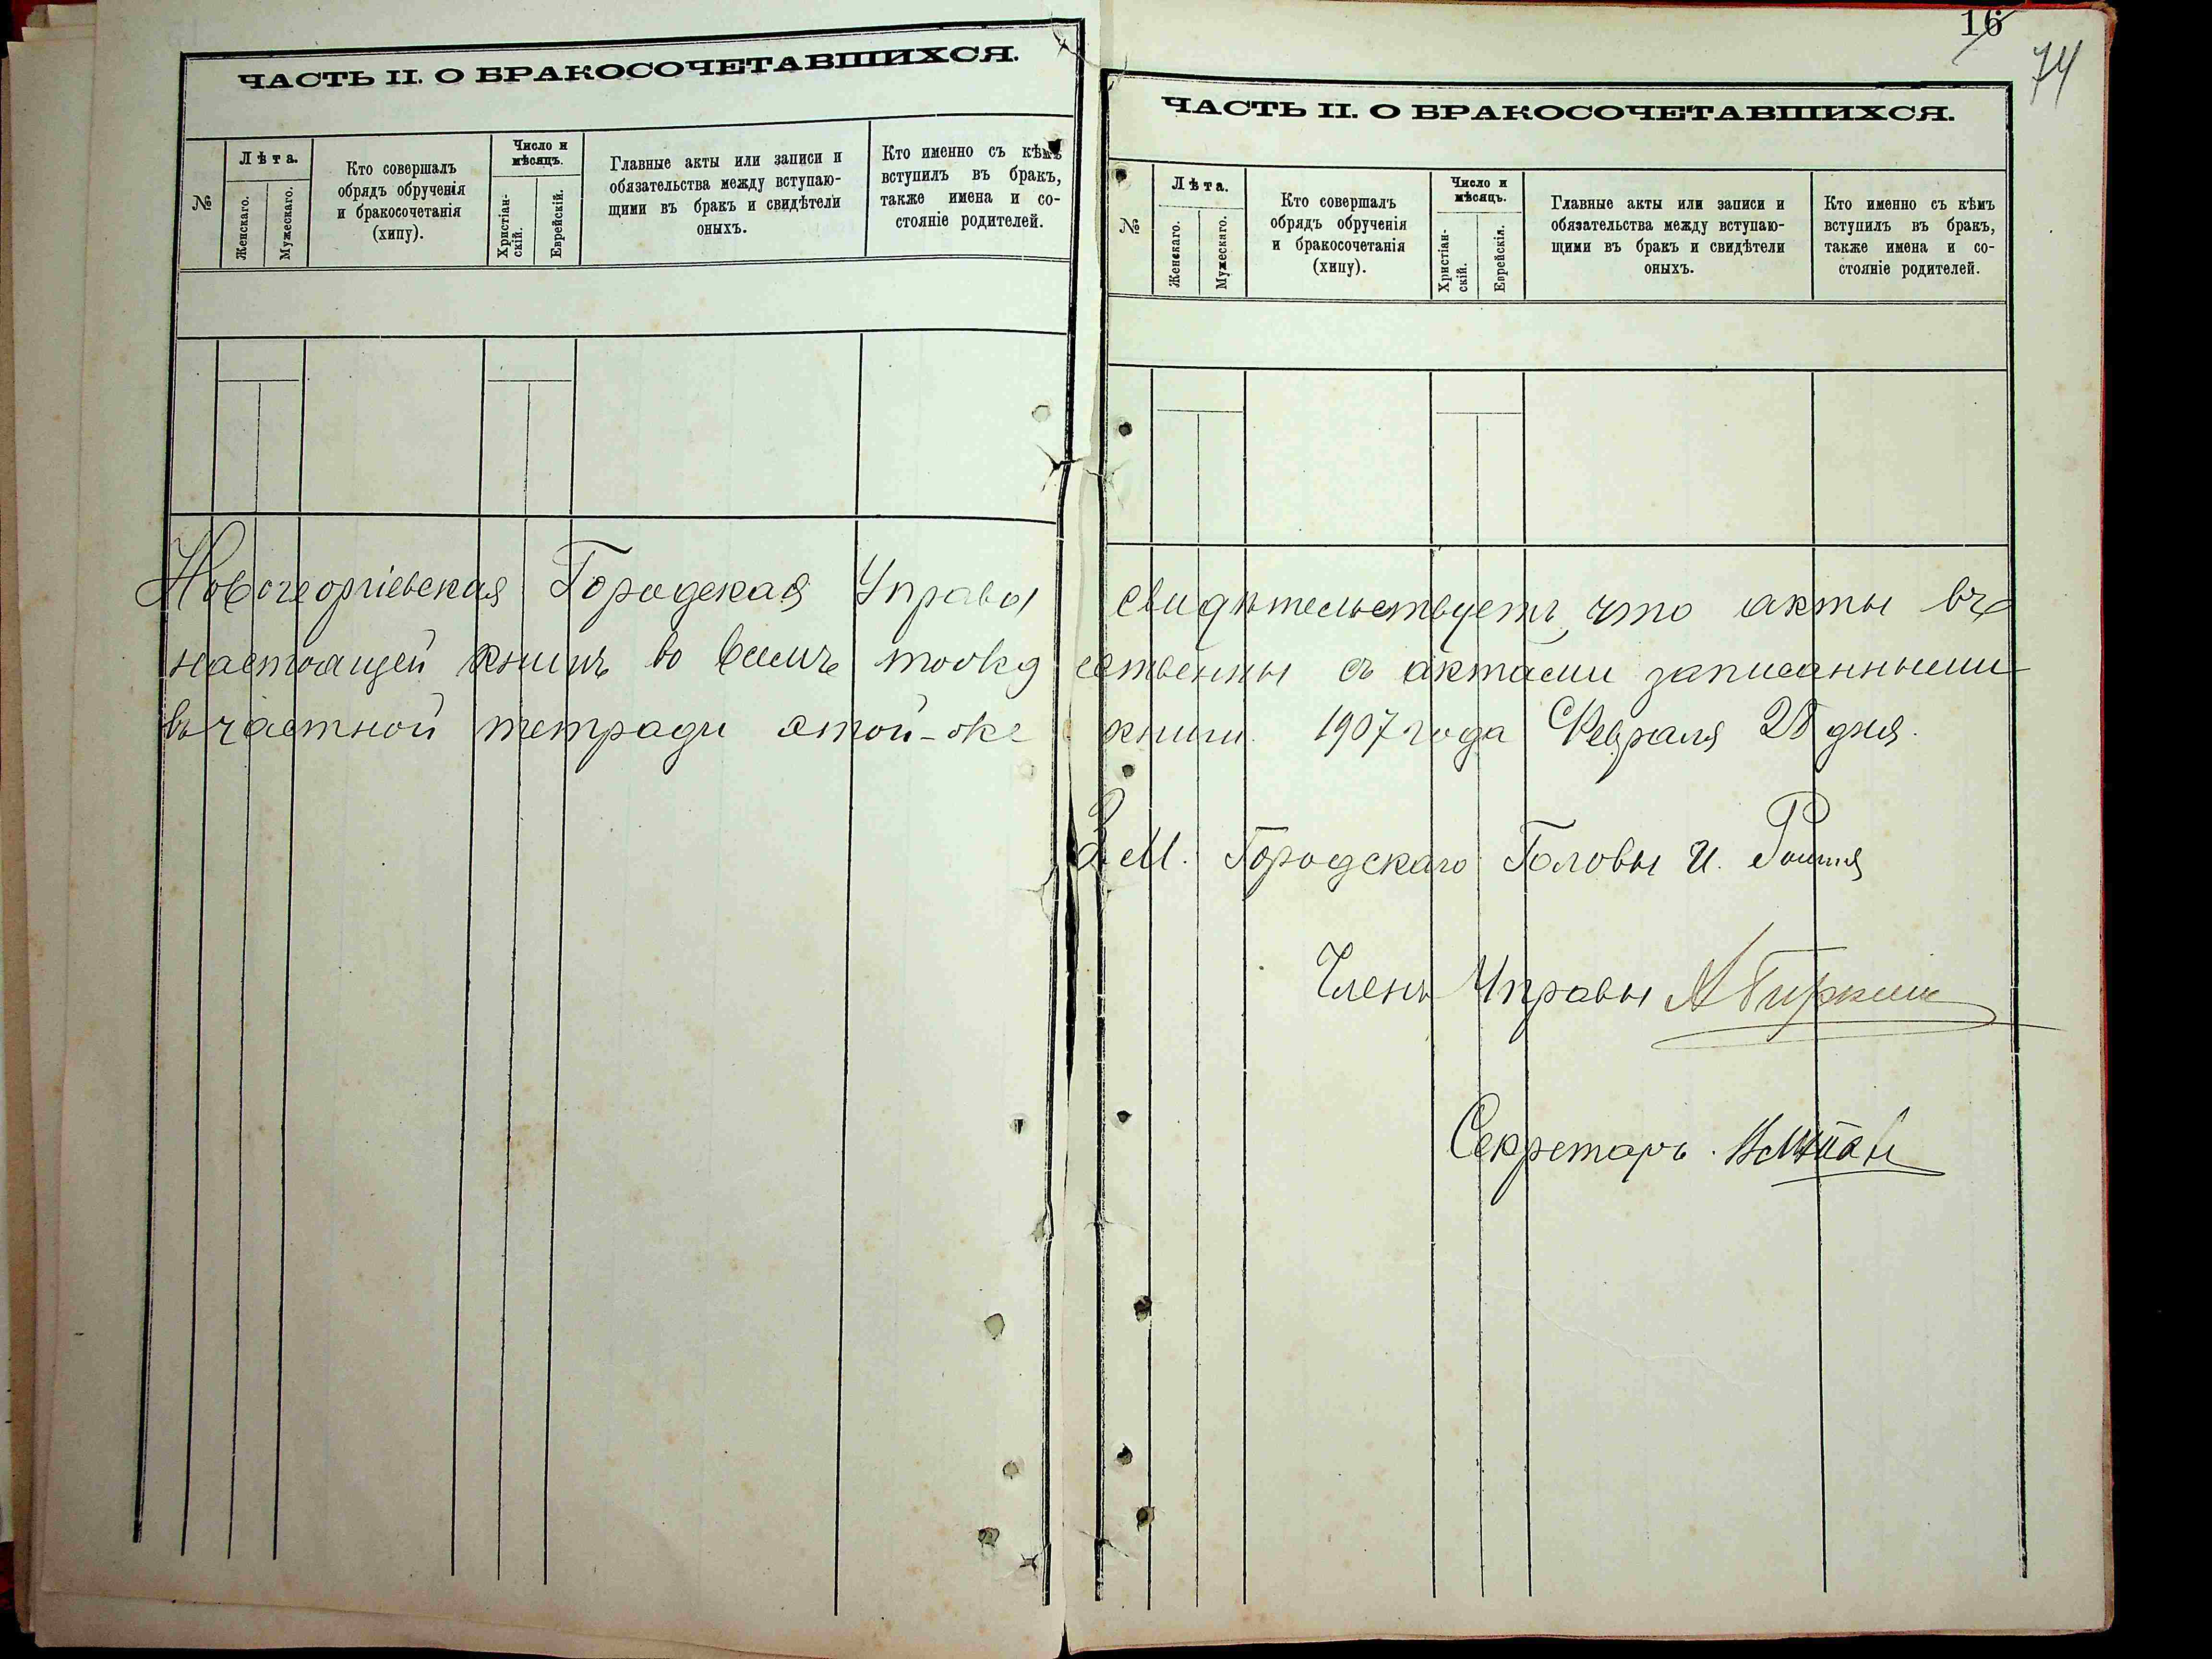 ЧАСТЬ II. О БРАКОСОЧЕТАВШИХСЯ.
№
Лѣта.
Женскаго.
Мужескаго.
Кто совершалъ
обрядъ обрученія
и бракосочетанія
(хипу).
Число и
мѣсяцъ.
Христіан-
скій.
Еврейскій.
Главные акты или записи и
обязательства между вступаю-
щими въ бракъ и свидѣтели
оныхъ.
Кто именно съ кѣмъ
вступилъ въ бракъ,
также имена и со-
стояніе родителей.
16
74
ЧАСТЬ II. О БРАКОСОЧЕТАВШИХСЯ.
№
Лѣта.
Женскаго.
Мужескаго.
Кто совершалъ
обрядъ обрученія
и бракосочетанія
(хипу).
Число и
мѣсяцъ.
Христіан-
скій.
Еврейскія.
Главные акты или записи и
обязательства между вступаю-
щими въ бракъ и свидѣтели
оныхъ.
Кто именно съ кѣмъ
вступилъ въ бракъ,
также имена и со-
стояніе родителей.
Новогеоргіевская Городская Управа свидѣтельствуетъ, что акты въ
настоящей книгѣ во всемъ тождественны съ актами записанными
въ частной тетради этой-же книги. 1907 года Февраля 28 дня.
З. М. Городскаго Головы И.
Членъ Управы
Секретарь.